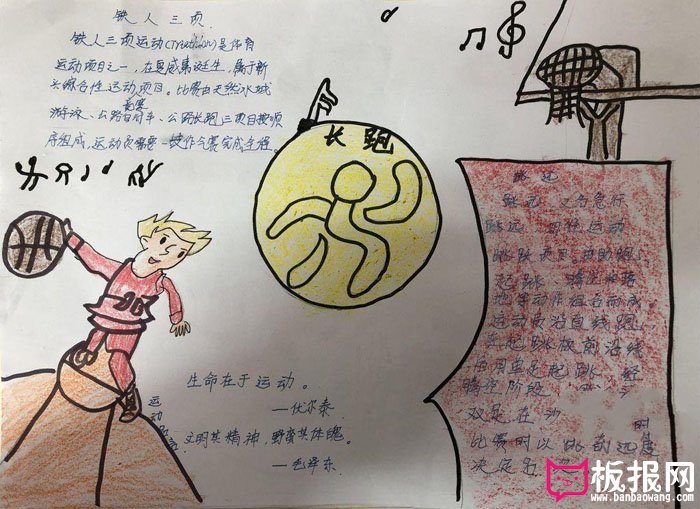 铁人三项
铁人三项运动(Triathlon)是体育
运动项目之一，在夏威夷诞生，属于新
兴综合性运动项目。比赛由天然水域
游泳、公路自行车、公路长跑三项目按顺
竞赛
序组成，运动员需要一鼓作气赛完全程。
长跑
生命在于运动。
—伏尔泰
文明其精神，野蛮其体魄。
—毛泽东
运动
跳远
跳远 又为急行
跳远 田径运动
起跳 腾空
也等动作组合而成
运动员沿直线跑
在起跳板前沿线
后用单足起跳 经
腾空阶段
双足在 动
比赛时以跳的远度
决定名
时
板报网
www.banbaowang.com